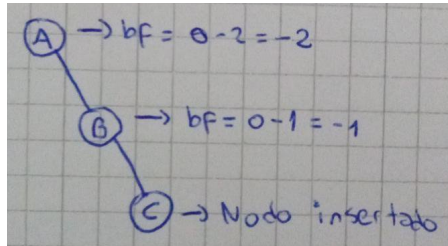 A → bf = 0-2 = -2
B → bf = 0-1 = -1
C → Nodo insertado